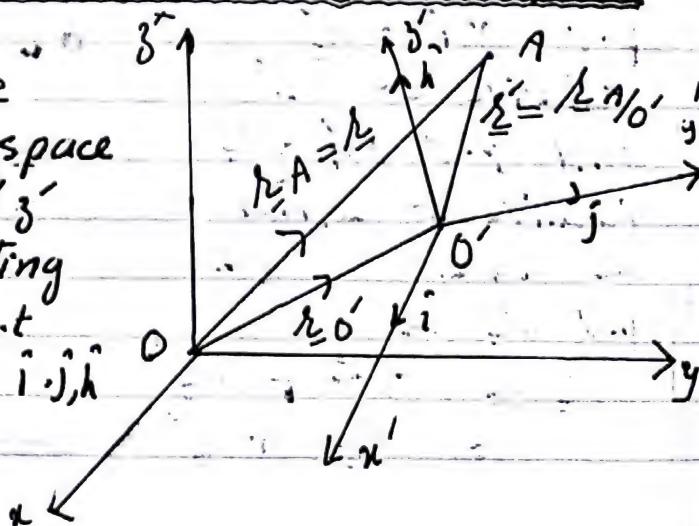 z
e
space
z'
ting
t
î.ĵ,k̂
z'
k̂
A
r_A = r
r' = r_A/O'
y'
ĵ
O'
r_O'
î
O
y
x'
x